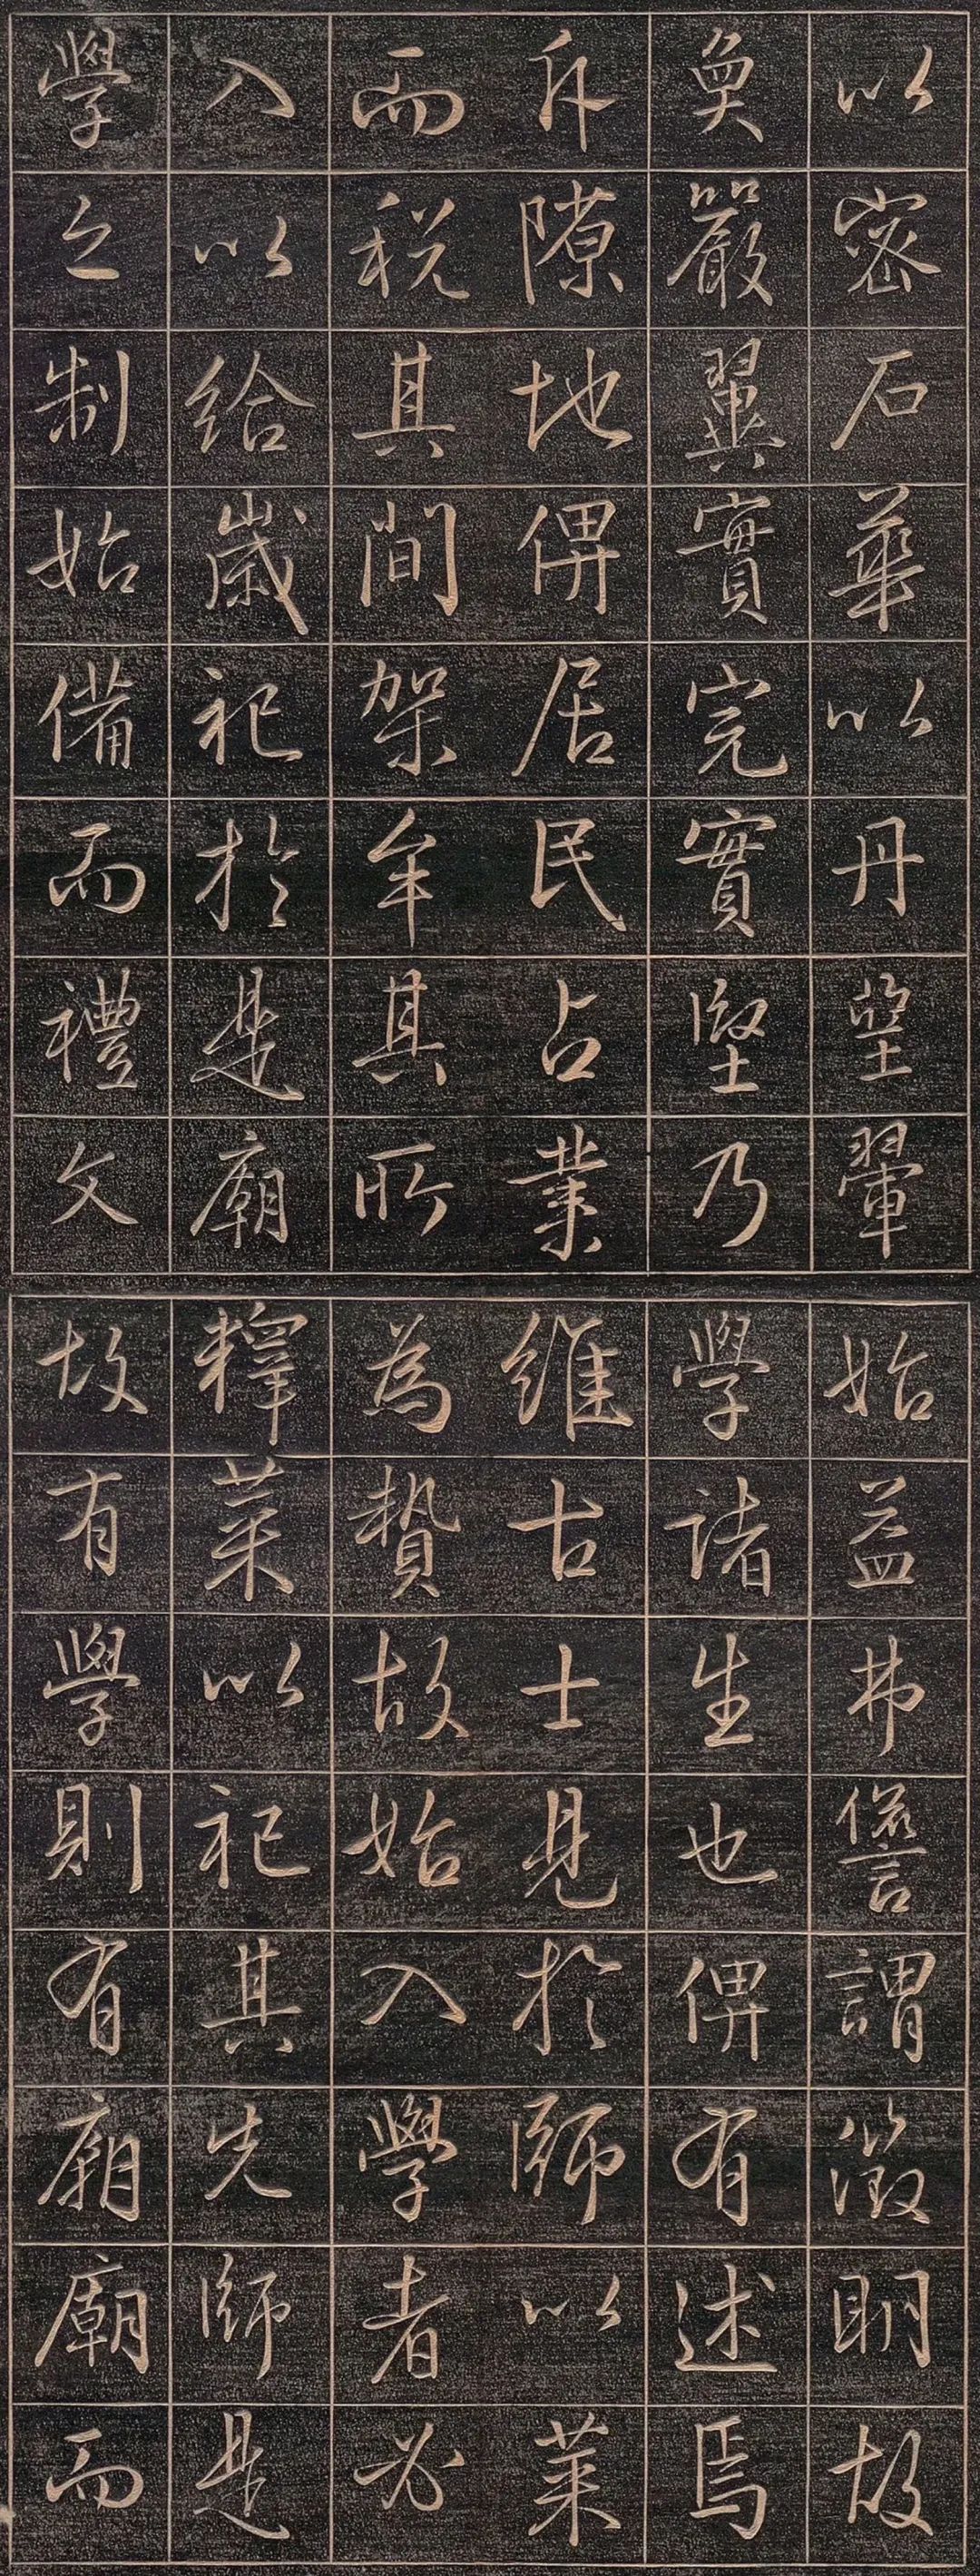 以密石華以丹堊翬
奐嚴翼實完實堅乃
斥隙地俾居民占業
而税其間架牟其所
入以給歲祀於是廟
學之制始備而禮文
始益弗諐謂徵明故
學諸生也俾有述焉
維古士見於師以菜
為贄故始入學者必
釋菜以祀其先師是
故有學則有廟廟而